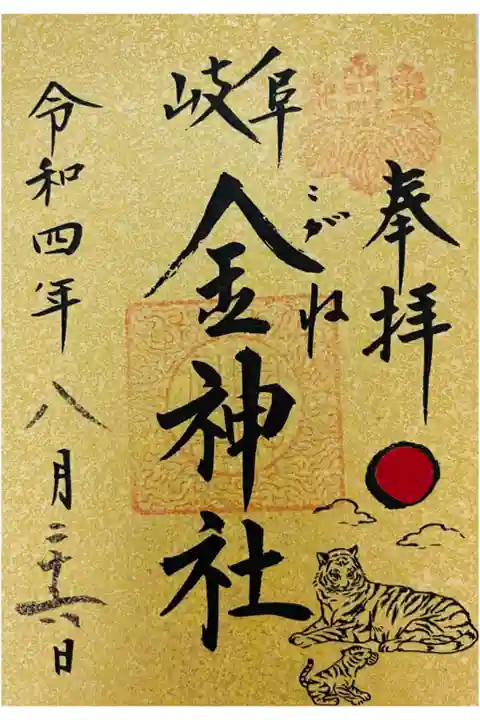 奉拝
岐阜
金神社
こがね
令和四年八月二十六日